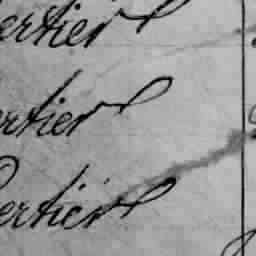 ertier
ertier
ertier